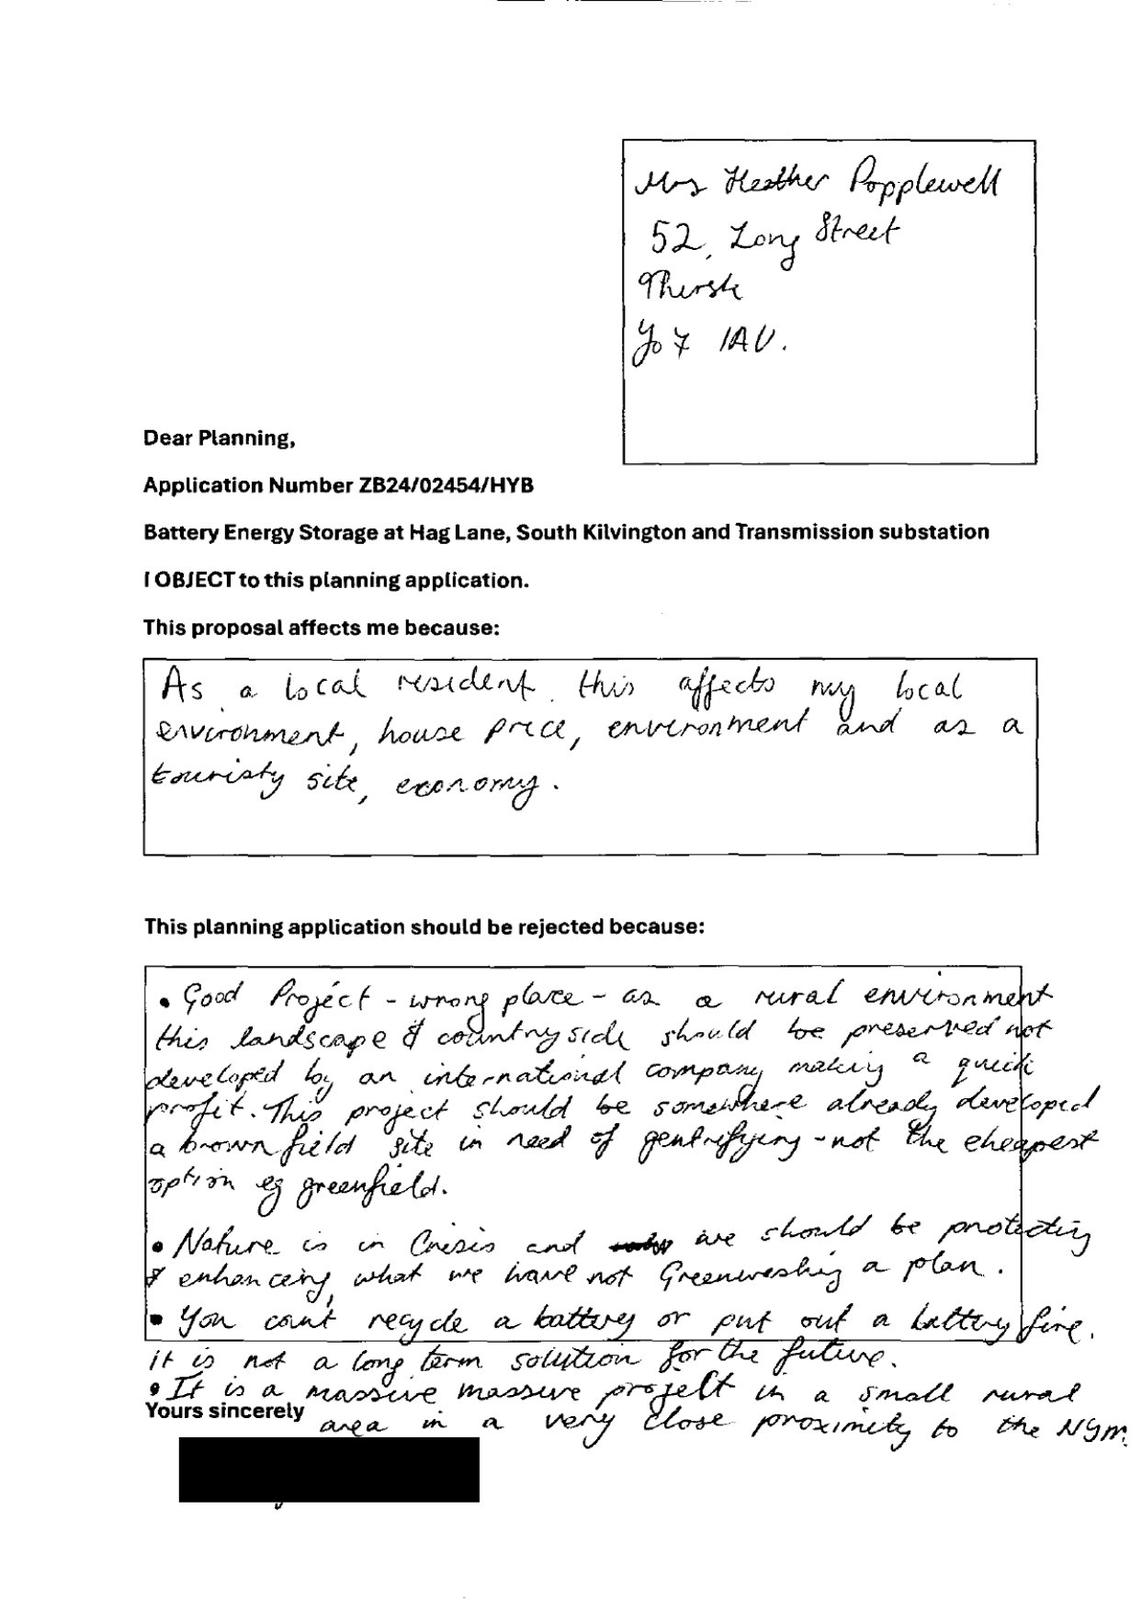 Mrs Heather Popplewell
52, Long Street
Thirsk
Yo7 1AU.
Dear Planning,
Application Number ZB24/02454/HYB
Battery Energy Storage at Hag Lane, South Kilvington and Transmission substation
I OBJECT to this planning application.
This proposal affects me because:
As a local resident this affects my local
environment, house price, environment and as a
touristy site, economy.
This planning application should be rejected because:
• Good Project - wrong place - as a rural environment
this landscape & countryside should be preserved not
developed by an international company making a quick
profit. This project should be somewhere already developed
a brownfield site in need of gentrifying - not the cheapest
option eg greenfield.
• Nature is in Crisis and we should be protecting
& enhancing, what we have not Greenwashing a plan.
• You can't recycle a battery or put out a battery fire.
it is not a long term solution for the future.
• It is a massive massive project in a small rural
Yours sincerely
area in a very close proximity to the NYM.